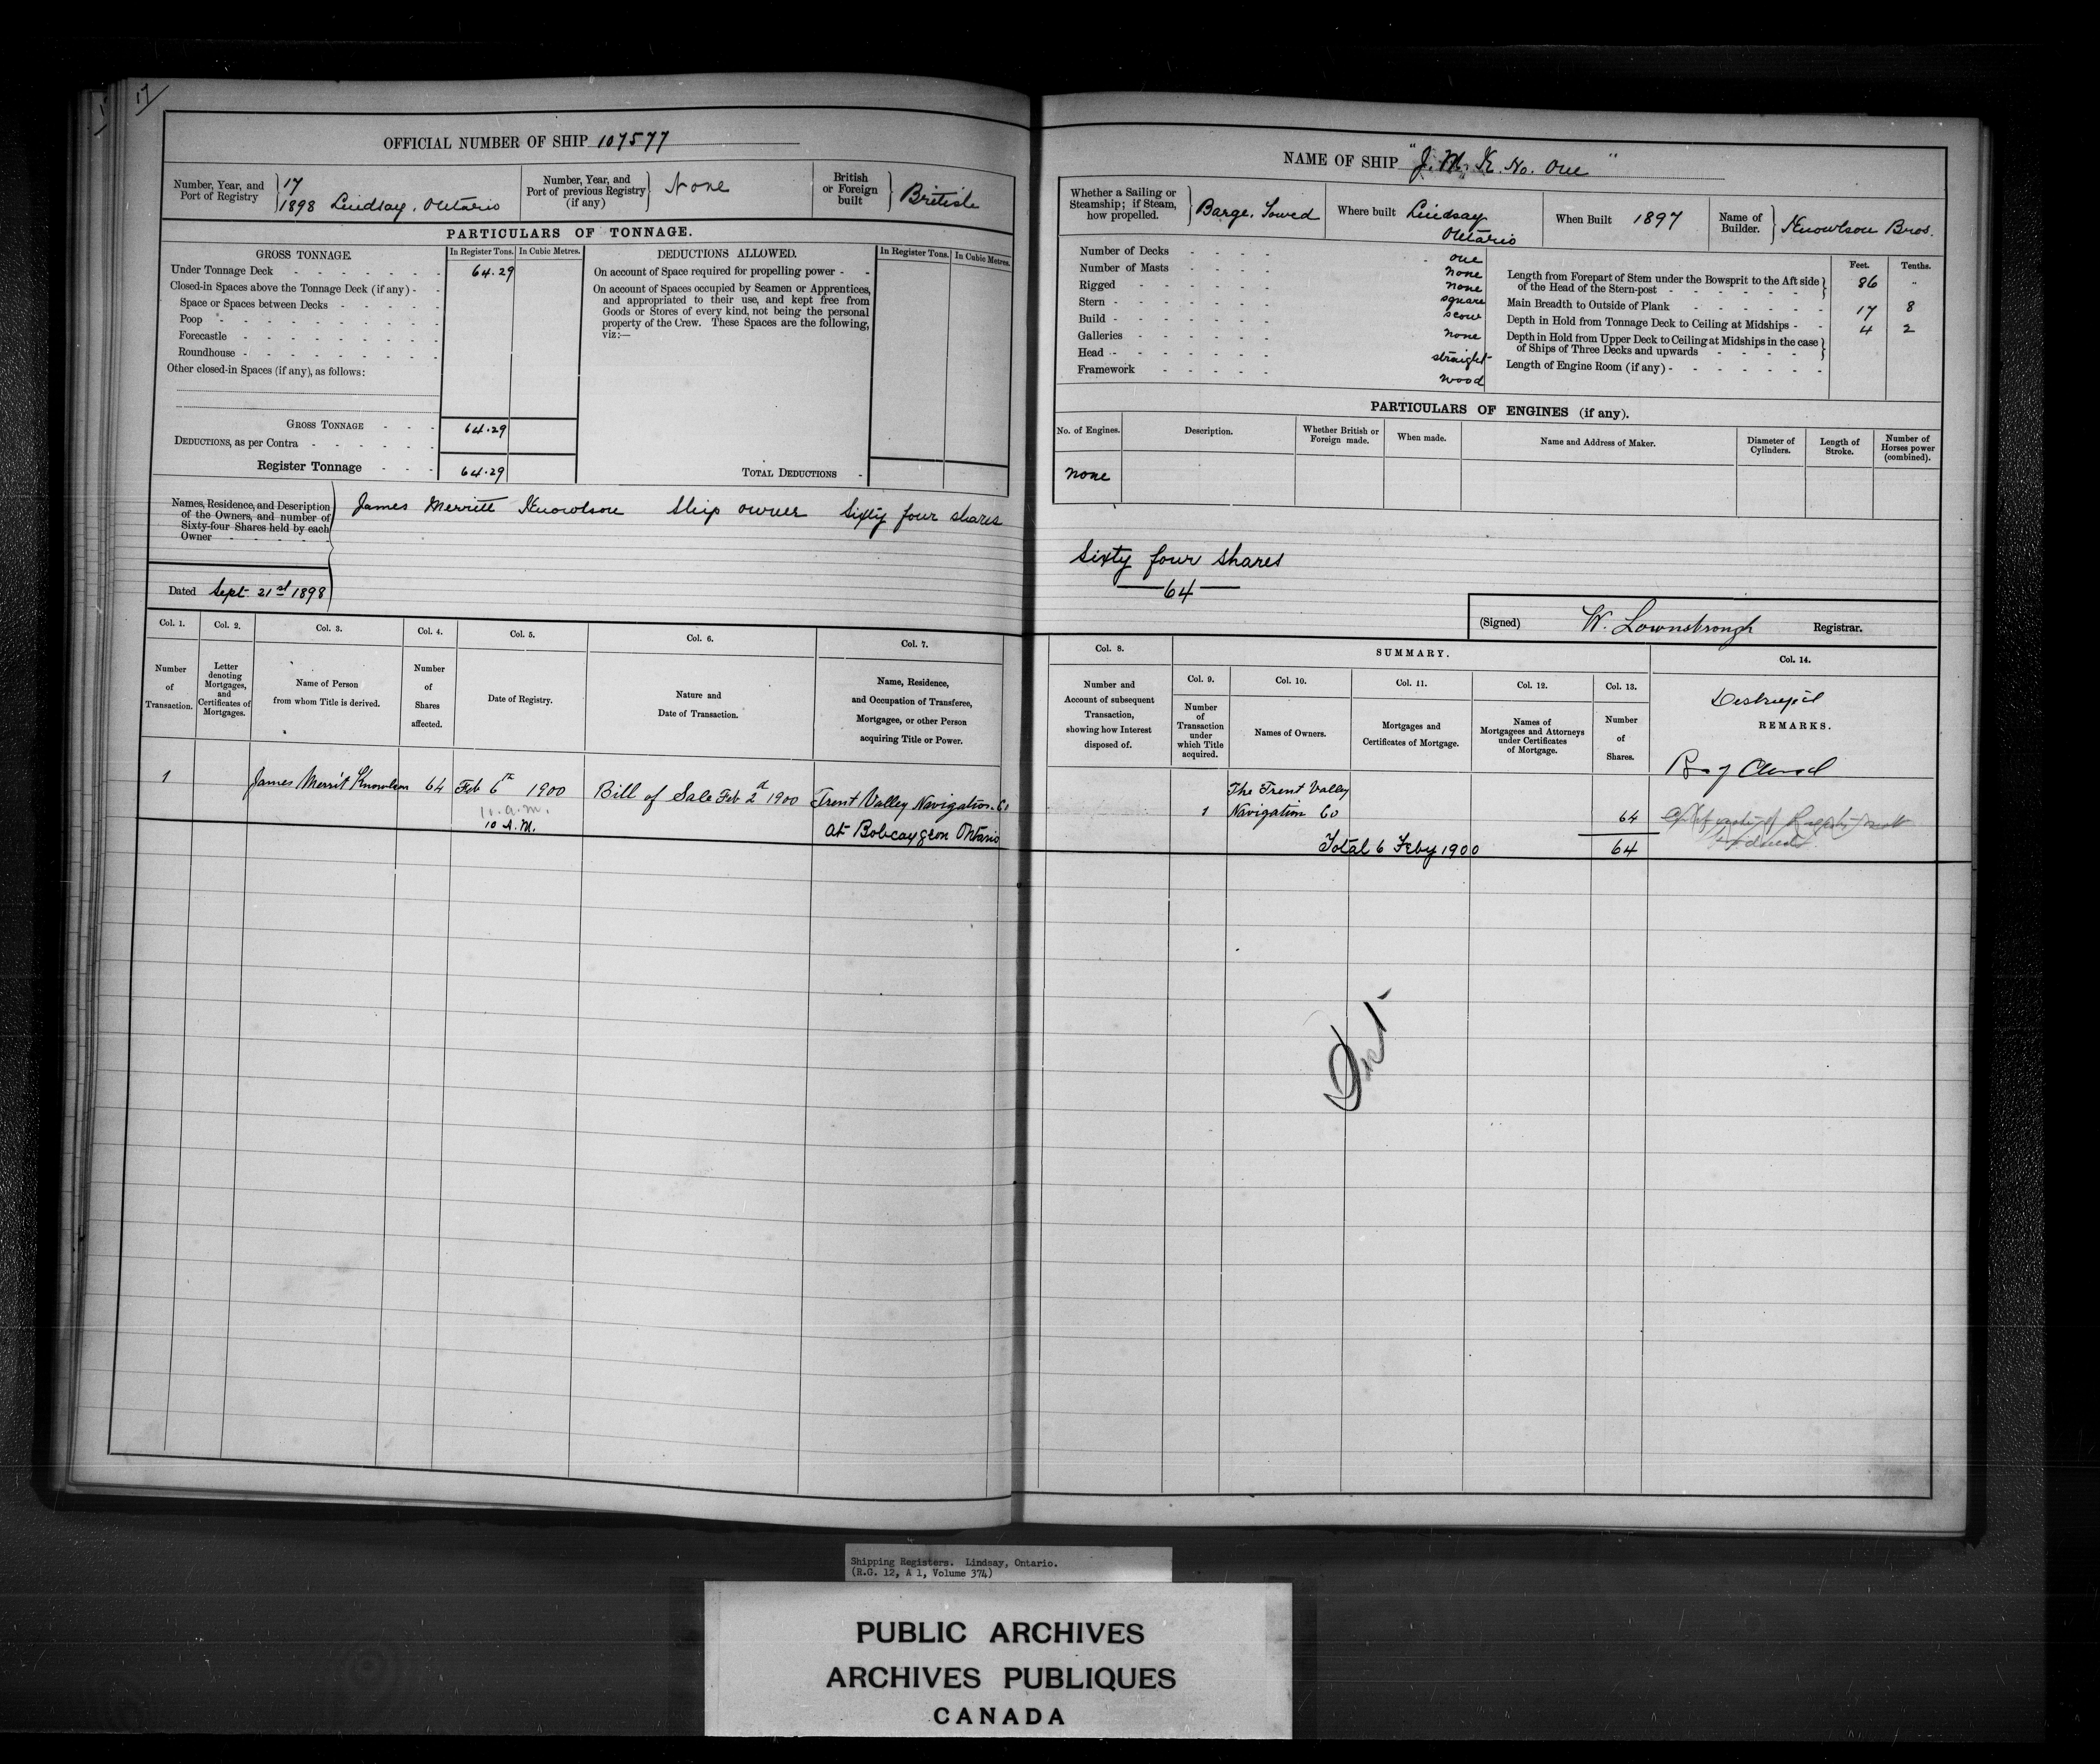 17
OFFICIAL NUMBER OF SHIP 107577
Number, Year, and Port of Registry
17
1898 Lindsay, Ontario
Number, Year, and Port of previous Registry (if any)
None
British or Foreign built
British
PARTICULARS OF TONNAGE.
GROSS TONNAGE.
In Register Tons.
In Cubic Metres.
DEDUCTIONS ALLOWED.
In Register Tons.
In Cubic Metres.
Under Tonnage Deck 64.29
Closed-in Spaces above the Tonnage Deck (if any)
Space or Spaces between Decks
Poop
Forecastle
Roundhouse
Other closed-in Spaces (if any), as follows:
GROSS TONNAGE 64.29
DEDUCTIONS, as per Contra
Register Tonnage 64.29
On account of Space required for propelling power
On account of Spaces occupied by Seamen or Apprentices,
and appropriated to their use, and kept free from
Goods or Stores of every kind, not being the personal
property of the Crew. These Spaces are the following,
viz:—
TOTAL DEDUCTIONS
Names, Residence, and Description
of the Owners, and number of
Sixty-four Shares held by each
Owner
James Merritt Knowlson Ship owner Sixty four shares
Dated Sept 21st 1898
Col. 1.
Col. 2.
Col. 3.
Col. 4.
Col. 5.
Col. 6.
Col. 7.
Number of Transaction.
Letter denoting Mortgages, and Certificates of Mortgages.
Name of Person from whom Title is derived.
Number of Shares affected.
Date of Registry.
Nature and Date of Transaction.
Name, Residence, and Occupation of Transferee, Mortgagee, or other Person acquiring Title or Power.
1 James Merrit Knowlson 64 Feb 6th 1900 Bill of Sale Feb 2d 1900 Trent Valley Navigation Co
10 a.m.
10 A.M. at Bobcaygeon Ontario
NAME OF SHIP "J. M. K. No. One"
Whether a Sailing or Steamship; if Steam, how propelled.
Barge, Towed
Where built Lindsay Ontario
When Built 1897
Name of Builder. Knowlson Bros.
Number of Decks one
Number of Masts none
Rigged none
Stern square
Build scow
Galleries none
Head straight
Framework wood
Feet. Tenths.
Length from Forepart of Stem under the Bowsprit to the Aft side
of the Head of the Stern-post 86 "
Main Breadth to Outside of Plank 17 8
Depth in Hold from Tonnage Deck to Ceiling at Midships 4 2
Depth in Hold from Upper Deck to Ceiling at Midships in the case
of Ships of Three Decks and upwards
Length of Engine Room (if any)
PARTICULARS OF ENGINES (if any).
No. of Engines.
Description.
Whether British or Foreign made.
When made.
Name and Address of Maker.
Diameter of Cylinders.
Length of Stroke.
Number of Horses power (combined).
none
Sixty four shares
64
(Signed) W. Lownsbrough Registrar.
Col. 8.
SUMMARY.
Col. 14.
Number and Account of subsequent Transaction, showing how Interest disposed of.
Col. 9.
Col. 10.
Col. 11.
Col. 12.
Col. 13.
Number of Transaction under which Title acquired.
Names of Owners.
Mortgages and Certificates of Mortgage.
Names of Mortgagees and Attorneys under Certificates of Mortgage.
Number of Shares.
REMARKS.
1 The Trent Valley
Navigation Co 64
Total 6 Feby 1900 64
Shipping Registers. Lindsay, Ontario.
(R.G. 12, A 1, Volume 374)
PUBLIC ARCHIVES
ARCHIVES PUBLIQUES
CANADA